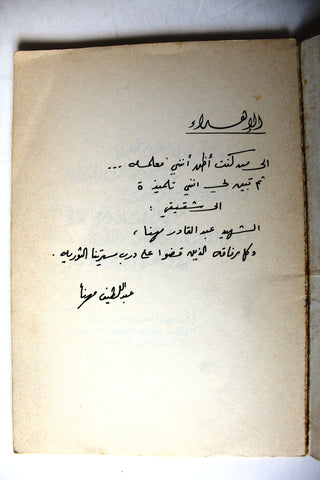 الإهداء
الى من كنت أظن أنني معلمه ...
ثم تبين لي انني تلميذة
الى شقيقي :
الشهيد عبد القادر مهنا ،
وكل رفاقه الذين قضوا على درب مسيرتنا الثوريه .
عبد اللطيف مهنا